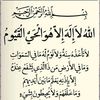 بسم الله الرحمن الرحيم
الله لا إله إلا هو الحي القيوم
لا تأخذه سنة ولا نوم له ما في السموات
وما في الأرض من ذا الذي يشفع عنده
إلا بإذنه يعلم ما بين أيديهم
وما خلفهم ولا يحيطون